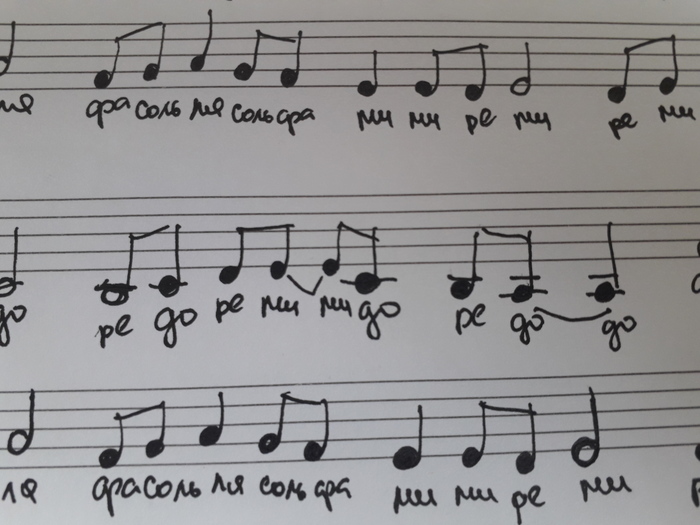 ля фа соль ля соль фа ми ми ре ми ре ми
до ре до ре ми ми до ре до до
ля фа соль ля соль фа ми ми ре ми